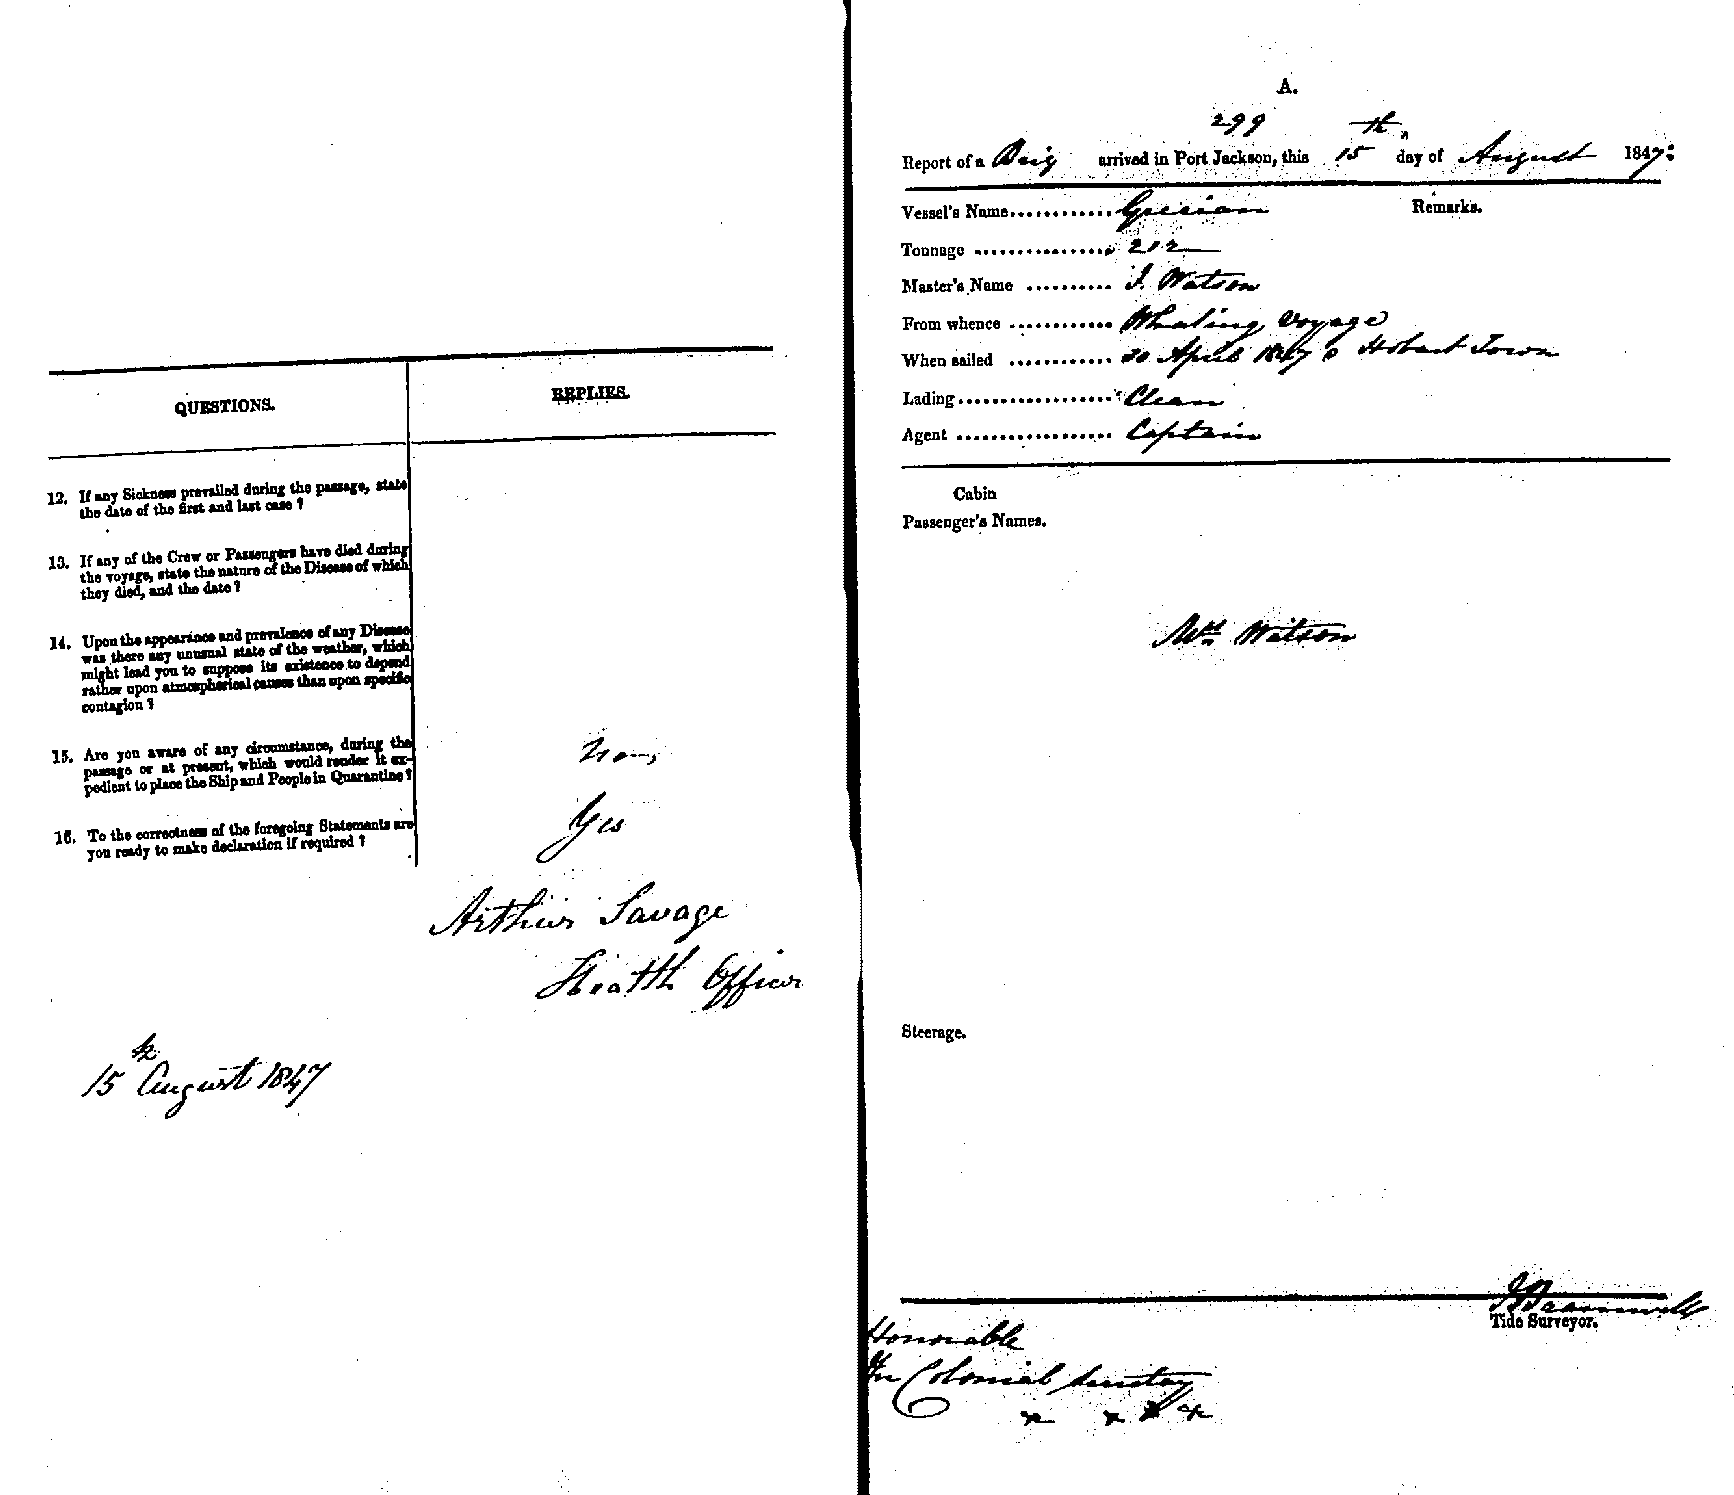 QUESTIONS.
REPLIES.
12. If any Sickness prevailed during the passage, state
the date of the first and last case ?
13. If any of the Crew or Passengers have died during
the voyage, state the nature of the Disease of which
they died, and the date ?
14. Upon the appearance and prevalence of any Disease
was there any unusual state of the weather, which
might lead you to suppose its existence to depend
rather upon atmospherical causes than upon specific
contagion ?
15. Are you aware of any circumstance, during the
passage or at present, which would render it ex-
pedient to place the Ship and People in Quarantine ?
16. To the correctness of the foregoing Statements are
you ready to make declaration if required ?
Yes
Arthur Savage
Health Officer
15th August 1847
A.
299
Report of a Brig arrived in Port Jackson, this 15th day of August 1847:
Vessel's Name............ Grecian Remarks.
Tonnage ................ 212
Master's Name .......... J. Watson
From whence ............ Whaling Voyage
When sailed ............ 20 April 1847 Hobart Town
Lading.................. Clean
Agent .................. Captain
Cabin
Passenger's Names.
Mrs Watson
Steerage.
Tide Surveyor.
Honorable
The Colonial Secretary